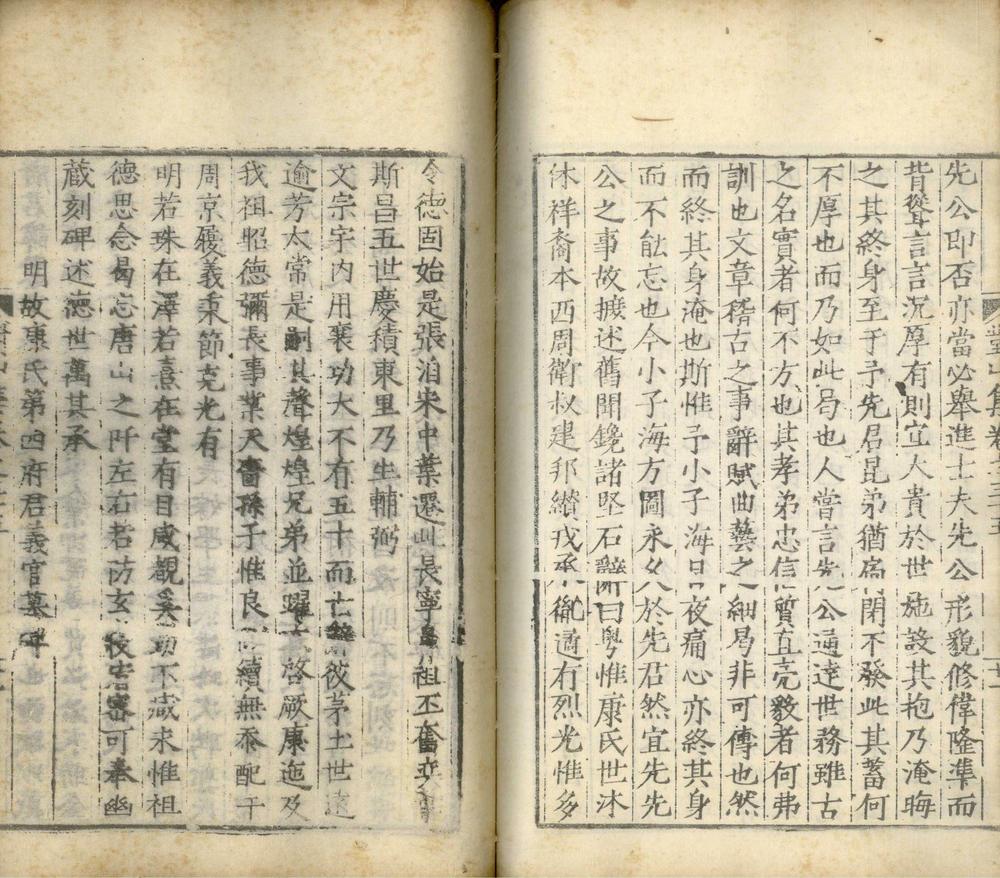 先公即否亦當必舉進士夫先公形貌修偉隆準而
背聳言言沉厚有則宜大貴於世施設其抱乃淹晦
之其終身至于予先君昆弟猶局閉不發此其蓄何
不厚也而乃如此曷也人嘗言先公通達世務雖古
之名實者何不方也其孝弟忠信質直亮毅者何弗
訓也文章稽古之事辭賦曲藝之細曷非可傳也然
而終其身淹也斯惟予小子海日夜痛心亦終其身
而不能忘也今小子海方圖永久於先君然宜先先
公之事故摭述舊聞鑱諸堅石辭曰粵惟康氏世沐
休祥裔本西周衛叔建邦纘戎承胤遹有烈光惟多
令德固始是張洎宋中葉遷此長寧 祖丕奮
斯昌五世慶積東里乃生輔弼
文宗宇内用襄功大不有五十而亡 彼茅土世遠
逾芳太常是嗣其聲煌煌兄弟並曜 啓厥康迤及
我祖昭德彌長事業天嗇孫子惟良 續無忝配于
周京履義秉節克光有
明若珠在澤若熹在堂有目咸觀奚 不臧求惟祖
德思念曷忘唐山之阡左右若防玄 可奉幽
藏刻碑述德世萬其承
明故康氏第四府君義官墓碑